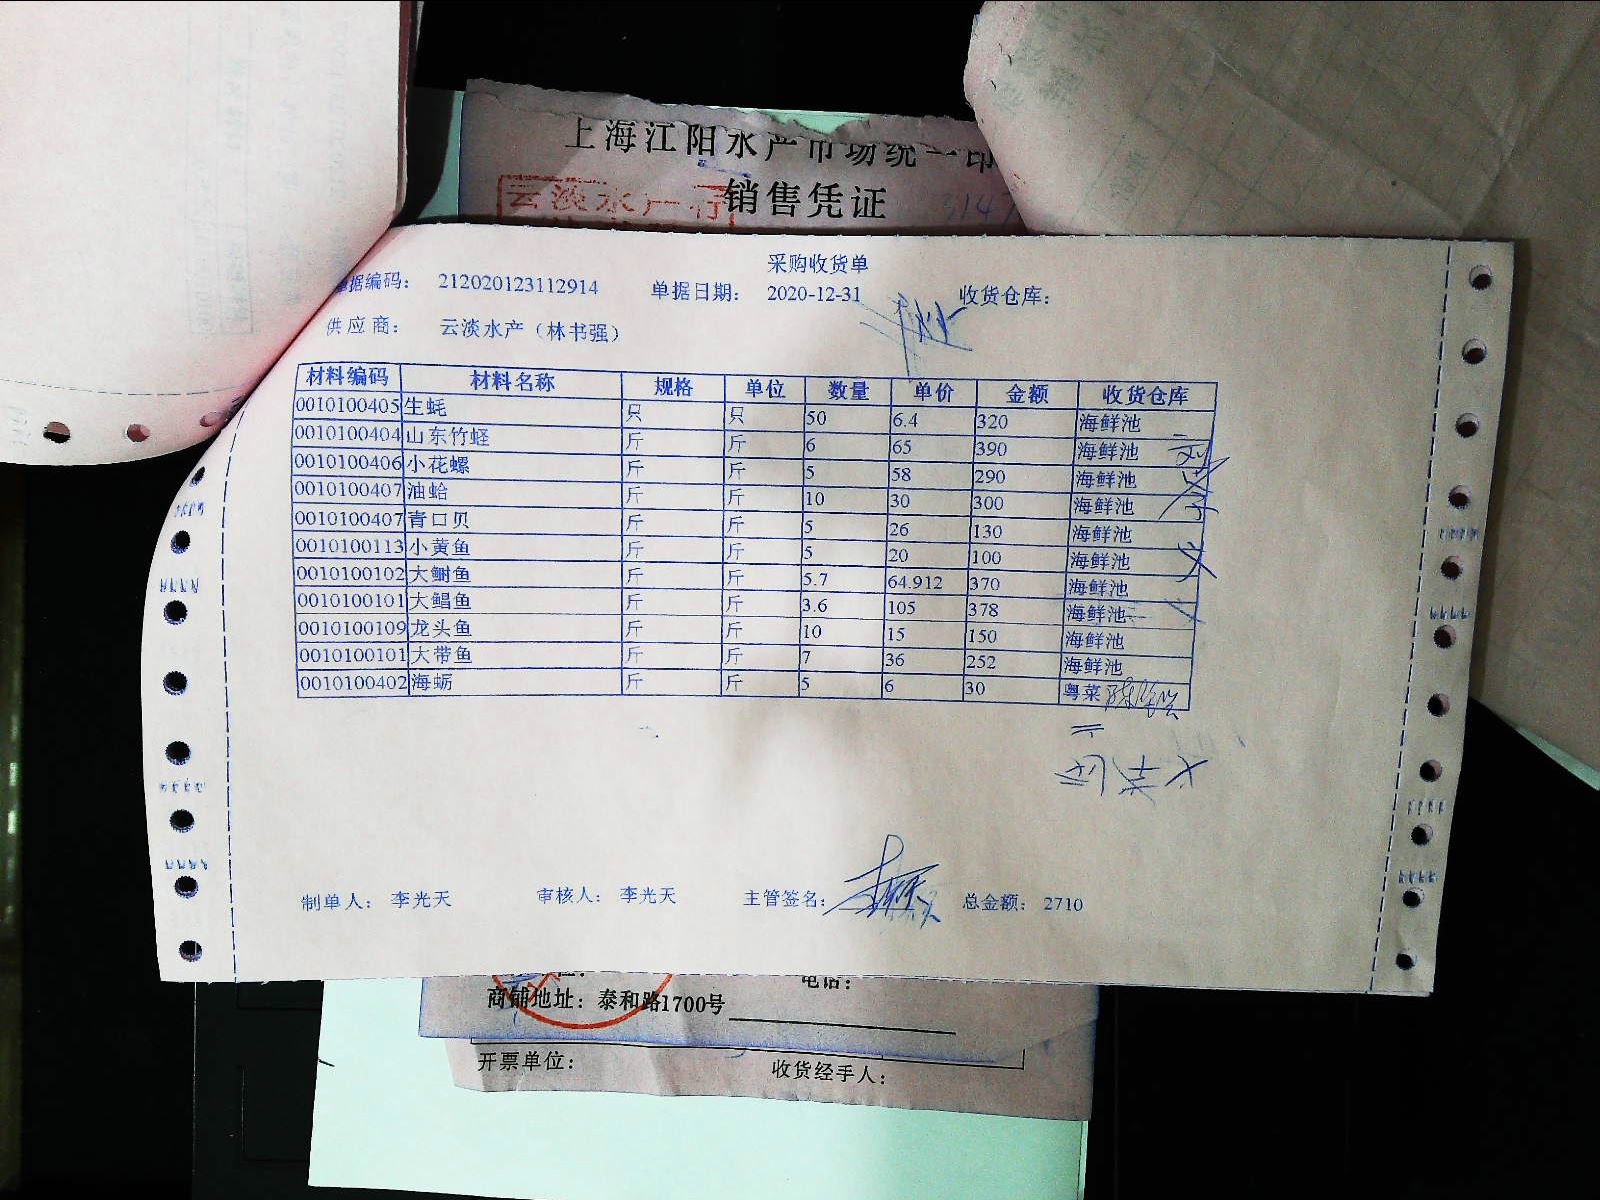 上海江阳水产市场统一印
云淡水产行
销售凭证
采购收货单
单据编码： 212020123112914 单据日期： 2020-12-31 收货仓库：
供应商： 云淡水产（林书强）
材料编码 材料名称 规格 单位 数量 单价 金额 收货仓库
0010100405 生蚝 只 只 50 6.4 320 海鲜池
0010100404 山东竹蛏 斤 斤 6 65 390 海鲜池
0010100406 小花螺 斤 斤 5 58 290 海鲜池
0010100407 油蛤 斤 斤 10 30 300 海鲜池
0010100407 青口贝 斤 斤 5 26 130 海鲜池
0010100113 小黄鱼 斤 斤 5 20 100 海鲜池
0010100102 大鲥鱼 斤 斤 5.7 64.912 370 海鲜池
0010100101 大鲳鱼 斤 斤 3.6 105 378 海鲜池
0010100109 龙头鱼 斤 斤 10 15 150 海鲜池
0010100101 大带鱼 斤 斤 7 36 252 海鲜池
0010100402 海蛎 斤 斤 5 6 30 粤菜
制单人： 李光天 审核人： 李光天 主管签名： 总金额： 2710
电话：
商铺地址：泰和路1700号
开票单位： 收货经手人：